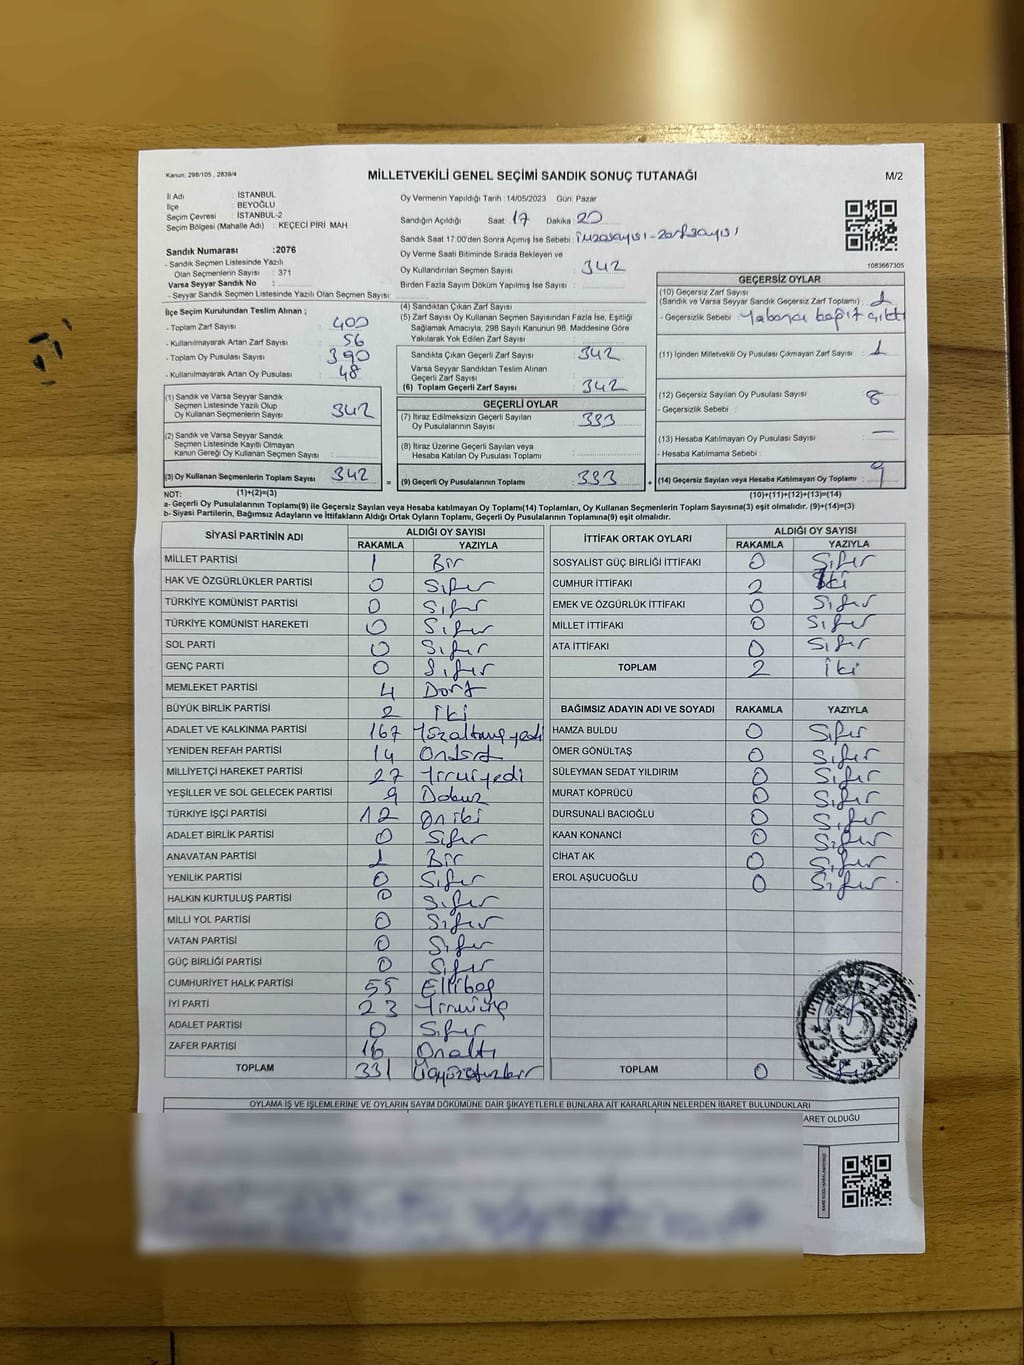 Kanun, 298/105 , 2839/4
MİLLETVEKİLİ GENEL SEÇİMİ SANDIK SONUÇ TUTANAĞI
M/2
İl Adı : İSTANBUL
İlçe : BEYOĞLU
Seçim Çevresi : İSTANBUL-2
Seçim Bölgesi (Mahalle Adı) : KEÇECİ PİRİ MAH
Sandık Numarası : 2076
- Sandık Seçmen Listesinde Yazılı
Olan Seçmenlerin Sayısı : 371
Varsa Seyyar Sandık No :
- Seyyar Sandık Seçmen Listesinde Yazılı Olan Seçmen Sayısı
Oy Vermenin Yapıldığı Tarih : 14/05/2023 Gün: Pazar
Sandığın Açıldığı Saat 17 Dakika 20
Sandık Saat 17:00'den Sonra Açılmış İse Sebebi : imza sayısı - zarf sayısı
Oy Verme Saati Bitiminde Sırada Bekleyen ve
Oy Kullandırılan Seçmen Sayısı : 342
Birden Fazla Sayım Döküm Yapılmış İse Sayısı :
1083667305
İlçe Seçim Kurulundan Teslim Alınan ;
- Toplam Zarf Sayısı : 400
- Kullanılmayarak Artan Zarf Sayısı : 56
- Toplam Oy Pusulası Sayısı : 390
- Kullanılmayarak Artan Oy Pusulası : 48
(1) Sandık ve Varsa Seyyar Sandık
Seçmen Listesinde Yazılı Olup
Oy Kullanan Seçmenlerin Sayısı : 342
(2) Sandık ve Varsa Seyyar Sandık
Seçmen Listesinde Kayıtlı Olmayan
Kanun Gereği Oy Kullanan Seçmen Sayısı :
(3) Oy Kullanan Seçmenlerin Toplam Sayısı : 342
(4) Sandıktan Çıkan Zarf Sayısı :
(5) Zarf Sayısı Oy Kullanan Seçmen Sayısından Fazla İse, Eşitliği
Sağlamak Amacıyla, 298 Sayılı Kanunun 98. Maddesine Göre
Yakılarak Yok Edilen Zarf Sayısı :
Sandıkta Çıkan Geçerli Zarf Sayısı : 342
Varsa Seyyar Sandıktan Teslim Alınan
Geçerli Zarf Sayısı :
(6) Toplam Geçerli Zarf Sayısı : 342
GEÇERLİ OYLAR
(7) İtiraz Edilmeksizin Geçerli Sayılan
Oy Pusulalarının Sayısı : 333
(8) İtiraz Üzerine Geçerli Sayılan veya
Hesaba Katılan Oy Pusulası Toplamı :
= (9) Geçerli Oy Pusulalarının Toplamı : 333
GEÇERSİZ OYLAR
(10) Geçersiz Zarf Sayısı
(Sandık ve Varsa Seyyar Sandık Geçersiz Zarf Toplamı) :
- Geçersizlik Sebebi : Yabancı kağıt çıktı
(11) İçinden Milletvekili Oy Pusulası Çıkmayan Zarf Sayısı : 1
(12) Geçersiz Sayılan Oy Pusulası Sayısı : 8
- Geçersizlik Sebebi :
(13) Hesaba Katılmayan Oy Pusulası Sayısı : —
- Hesaba Katılmama Sebebi :
+ (14) Geçersiz Sayılan veya Hesaba Katılmayan Oy Toplamı : 9
NOT: (1)+(2)=(3) (10)+(11)+(12)+(13)=(14)
a- Geçerli Oy Pusulalarının Toplamı(9) ile Geçersiz Sayılan veya Hesaba katılmayan Oy Toplamı(14) Toplamları, Oy Kullanan Seçmenlerin Toplam Sayısına(3) eşit olmalıdır. (9)+(14)=(3)
b- Siyasi Partilerin, Bağımsız Adayların ve İttifakların Aldığı Oyların Toplamı, Geçerli Oy Pusulalarının Toplamına(9) eşit olmalıdır.
SİYASİ PARTİNİN ADI ALDIĞI OY SAYISI
RAKAMLA YAZIYLA
MİLLET PARTİSİ 1 Bir
HAK VE ÖZGÜRLÜKLER PARTİSİ 0 Sıfır
TÜRKİYE KOMÜNİST PARTİSİ 0 Sıfır
TÜRKİYE KOMÜNİST HAREKETİ 0 Sıfır
SOL PARTİ 0 Sıfır
GENÇ PARTİ 0 Sıfır
MEMLEKET PARTİSİ 4 Dört
BÜYÜK BİRLİK PARTİSİ 2 İki
ADALET VE KALKINMA PARTİSİ 167 Yüzaltmışyedi
YENİDEN REFAH PARTİSİ 14 Ondört
MİLLİYETÇİ HAREKET PARTİSİ 27 Yirmiyedi
YEŞİLLER VE SOL GELECEK PARTİSİ 9 Dokuz
TÜRKİYE İŞÇİ PARTİSİ 12 Oniki
ADALET BİRLİK PARTİSİ 0 Sıfır
ANAVATAN PARTİSİ 1 Bir
YENİLİK PARTİSİ 0 Sıfır
HALKIN KURTULUŞ PARTİSİ 0 Sıfır
MİLLİ YOL PARTİSİ 0 Sıfır
VATAN PARTİSİ 0 Sıfır
GÜÇ BİRLİĞİ PARTİSİ 0 Sıfır
CUMHURİYET HALK PARTİSİ 55 Ellibeş
İYİ PARTİ 23 Yirmiüç
ADALET PARTİSİ 0 Sıfır
ZAFER PARTİSİ 16 Onaltı
TOPLAM 331 Üçyüzotuzbir
İTTİFAK ORTAK OYLARI ALDIĞI OY SAYISI
RAKAMLA YAZIYLA
SOSYALİST GÜÇ BİRLİĞİ İTTİFAKI 0 Sıfır
CUMHUR İTTİFAKI 2 İki
EMEK VE ÖZGÜRLÜK İTTİFAKI 0 Sıfır
MİLLET İTTİFAKI 0 Sıfır
ATA İTTİFAKI 0 Sıfır
TOPLAM 2 İki
BAĞIMSIZ ADAYIN ADI VE SOYADI RAKAMLA YAZIYLA
HAMZA BULDU 0 Sıfır
ÖMER GÖNÜLTAŞ 0 Sıfır
SÜLEYMAN SEDAT YILDIRIM 0 Sıfır
MURAT KÖPRÜCÜ 0 Sıfır
DURSUNALİ BACIOĞLU 0 Sıfır
KAAN KONANCİ 0 Sıfır
CİHAT AK 0 Sıfır
EROL AŞUCUOĞLU 0 Sıfır
TOPLAM 0 Sıfır
OYLAMA İŞ VE İŞLEMLERİNE VE OYLARIN SAYIM DÖKÜMÜNE DAİR ŞİKAYETLERLE BUNLARA AİT KARARLARIN NELERDEN İBARET BULUNDUKLARI
ARET OLDUĞU